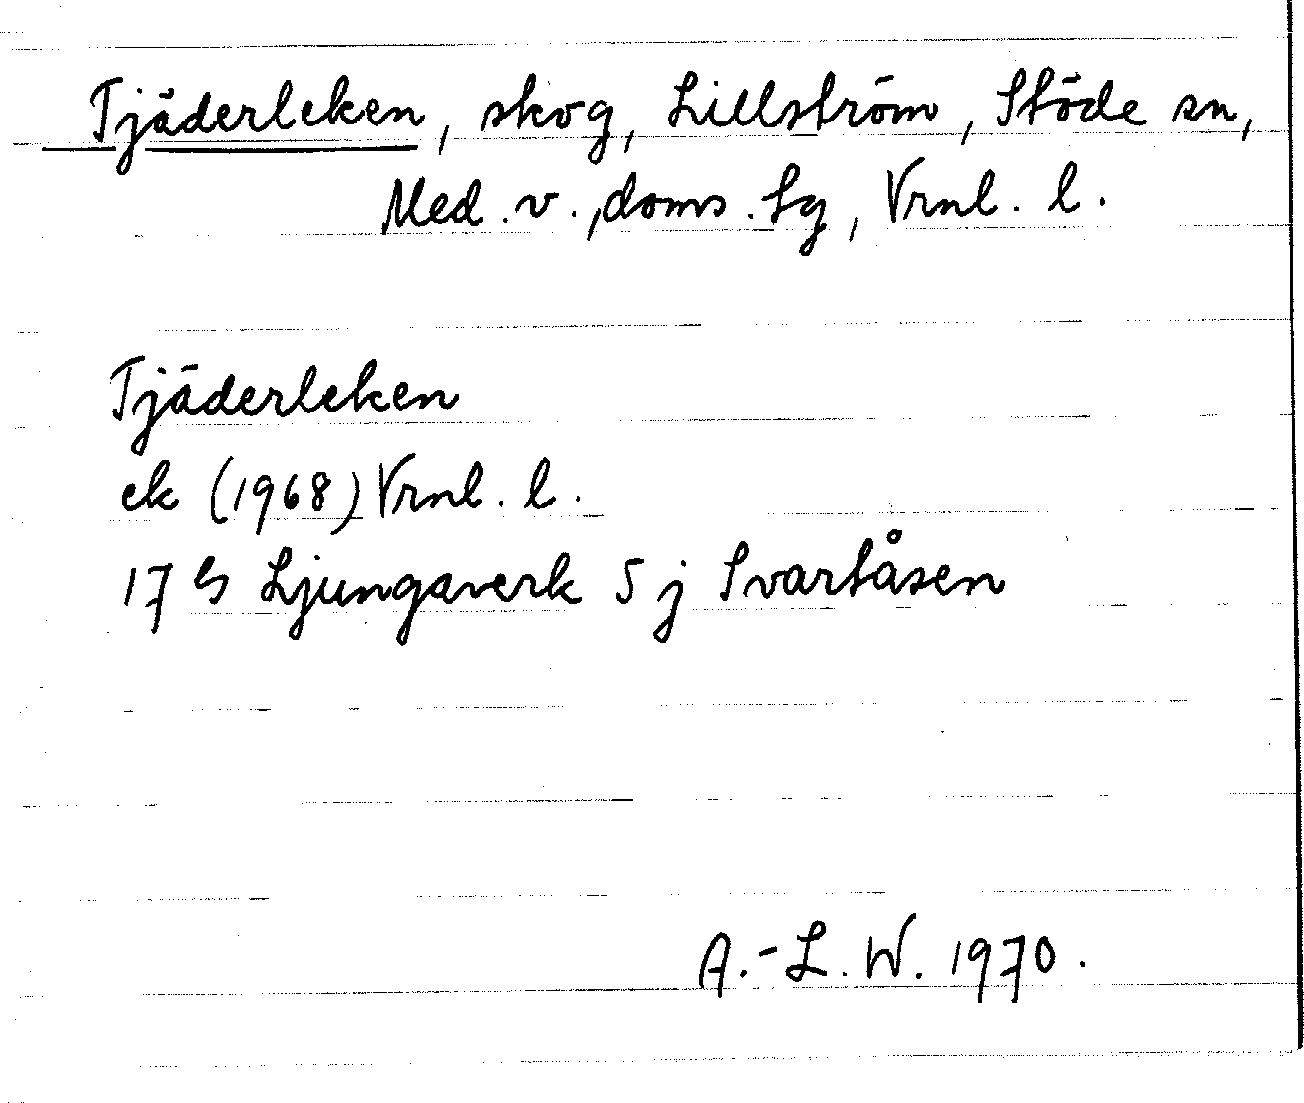 Tjäderleken, skog, Lillström, Stöde sn,
Med. v., doms. Sg, Vrnl. l.
Tjäderleken
ek (1968) Vrnl. l.
17 Ljungaverk 5 j Svartåsen
A.-L. W. 1970.